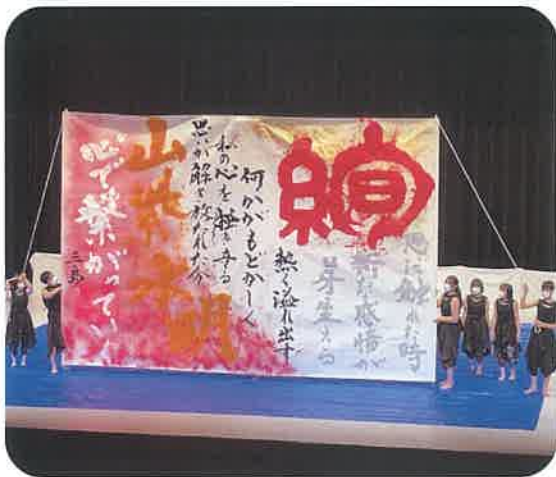 心に触れた時
新な感情が
芽生える
絢
熱く溢れ出す
何かがもどかしく
私の心を
思いが解き放たれた今
山紫水明
心で繋がっていく
三島